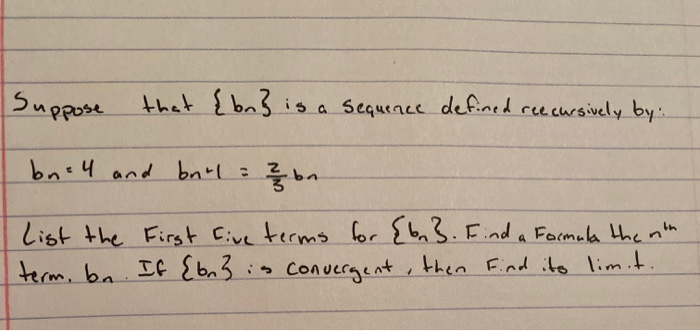 Suppose that {bn} is a sequence defined reecursively by:
bn = 4 and bn+1 = 2/3 bn
List the First Five terms for {bn}. Find a Formula the nth
term. bn. If {bn} is convergent, then Find its limit.